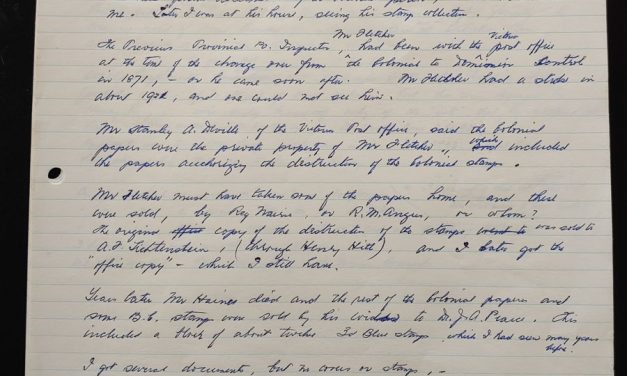 me. Later I was at his house, seeing his stamp collection.
Mr Fletcher Victoria
The Previous Provincial P.O. Inspector, had been with the post office
at the time of the change over from the Colonial to Dominion Control
in 1871, - or he came soon after. Mr Fletcher had a stroke in
about 1922, and one could not see him.
Mr Stanley A. Deville, of the Victoria Post office, said the Colonial
papers were the private property of Mr Fletcher, which included
the papers authorizing the destruction of the Colonial stamps.
Mr Fletcher must have taken some of the papers home, and these
were sold, by Reg Nairn, or R.M. Angus, or whom?
The original copy of the destruction of the stamps was sold to
A.F. Lichtenstein, (through Henry Hitt), and I later got the
"office copy" - which I still have.
Years later Mr Haines died and the rest of the Colonial papers and
some B.C. stamps were sold by his widow to Dr. J.A. Pearce. This
included a block of about twelve 3d Blue stamps, which I had seen many years
before.
I got several documents, but no covers or stamps, -